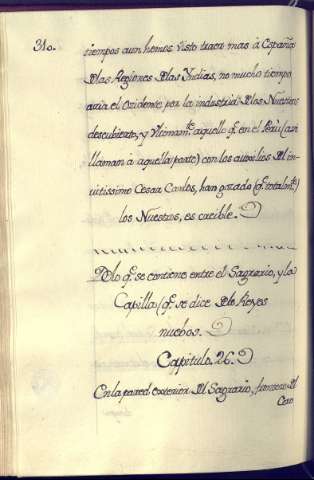 310.
tiempos aun hemos visto traer mas à España
Dlas Regiones Dlas Yndias, no mucho tiempo
avia el Ozidente por la industria Dlos Nuestros
descubierto, y Vltimamte. aquello q̃. en el Perù (assi
llaman à aquella parte) con los auxilios Dl in-
uitissimo Cesar Carlos, han gozado (q̃. totalmte.)
los Nuestros, es creible.
Dlo q̃. se contiene entre el Sagrario, y la
Capilla (q̃. se dice Dlo Reyes
nuebos.
Capitulo. 26.
En la pared exterior Dl Sagrario, frontero Dl
Coro